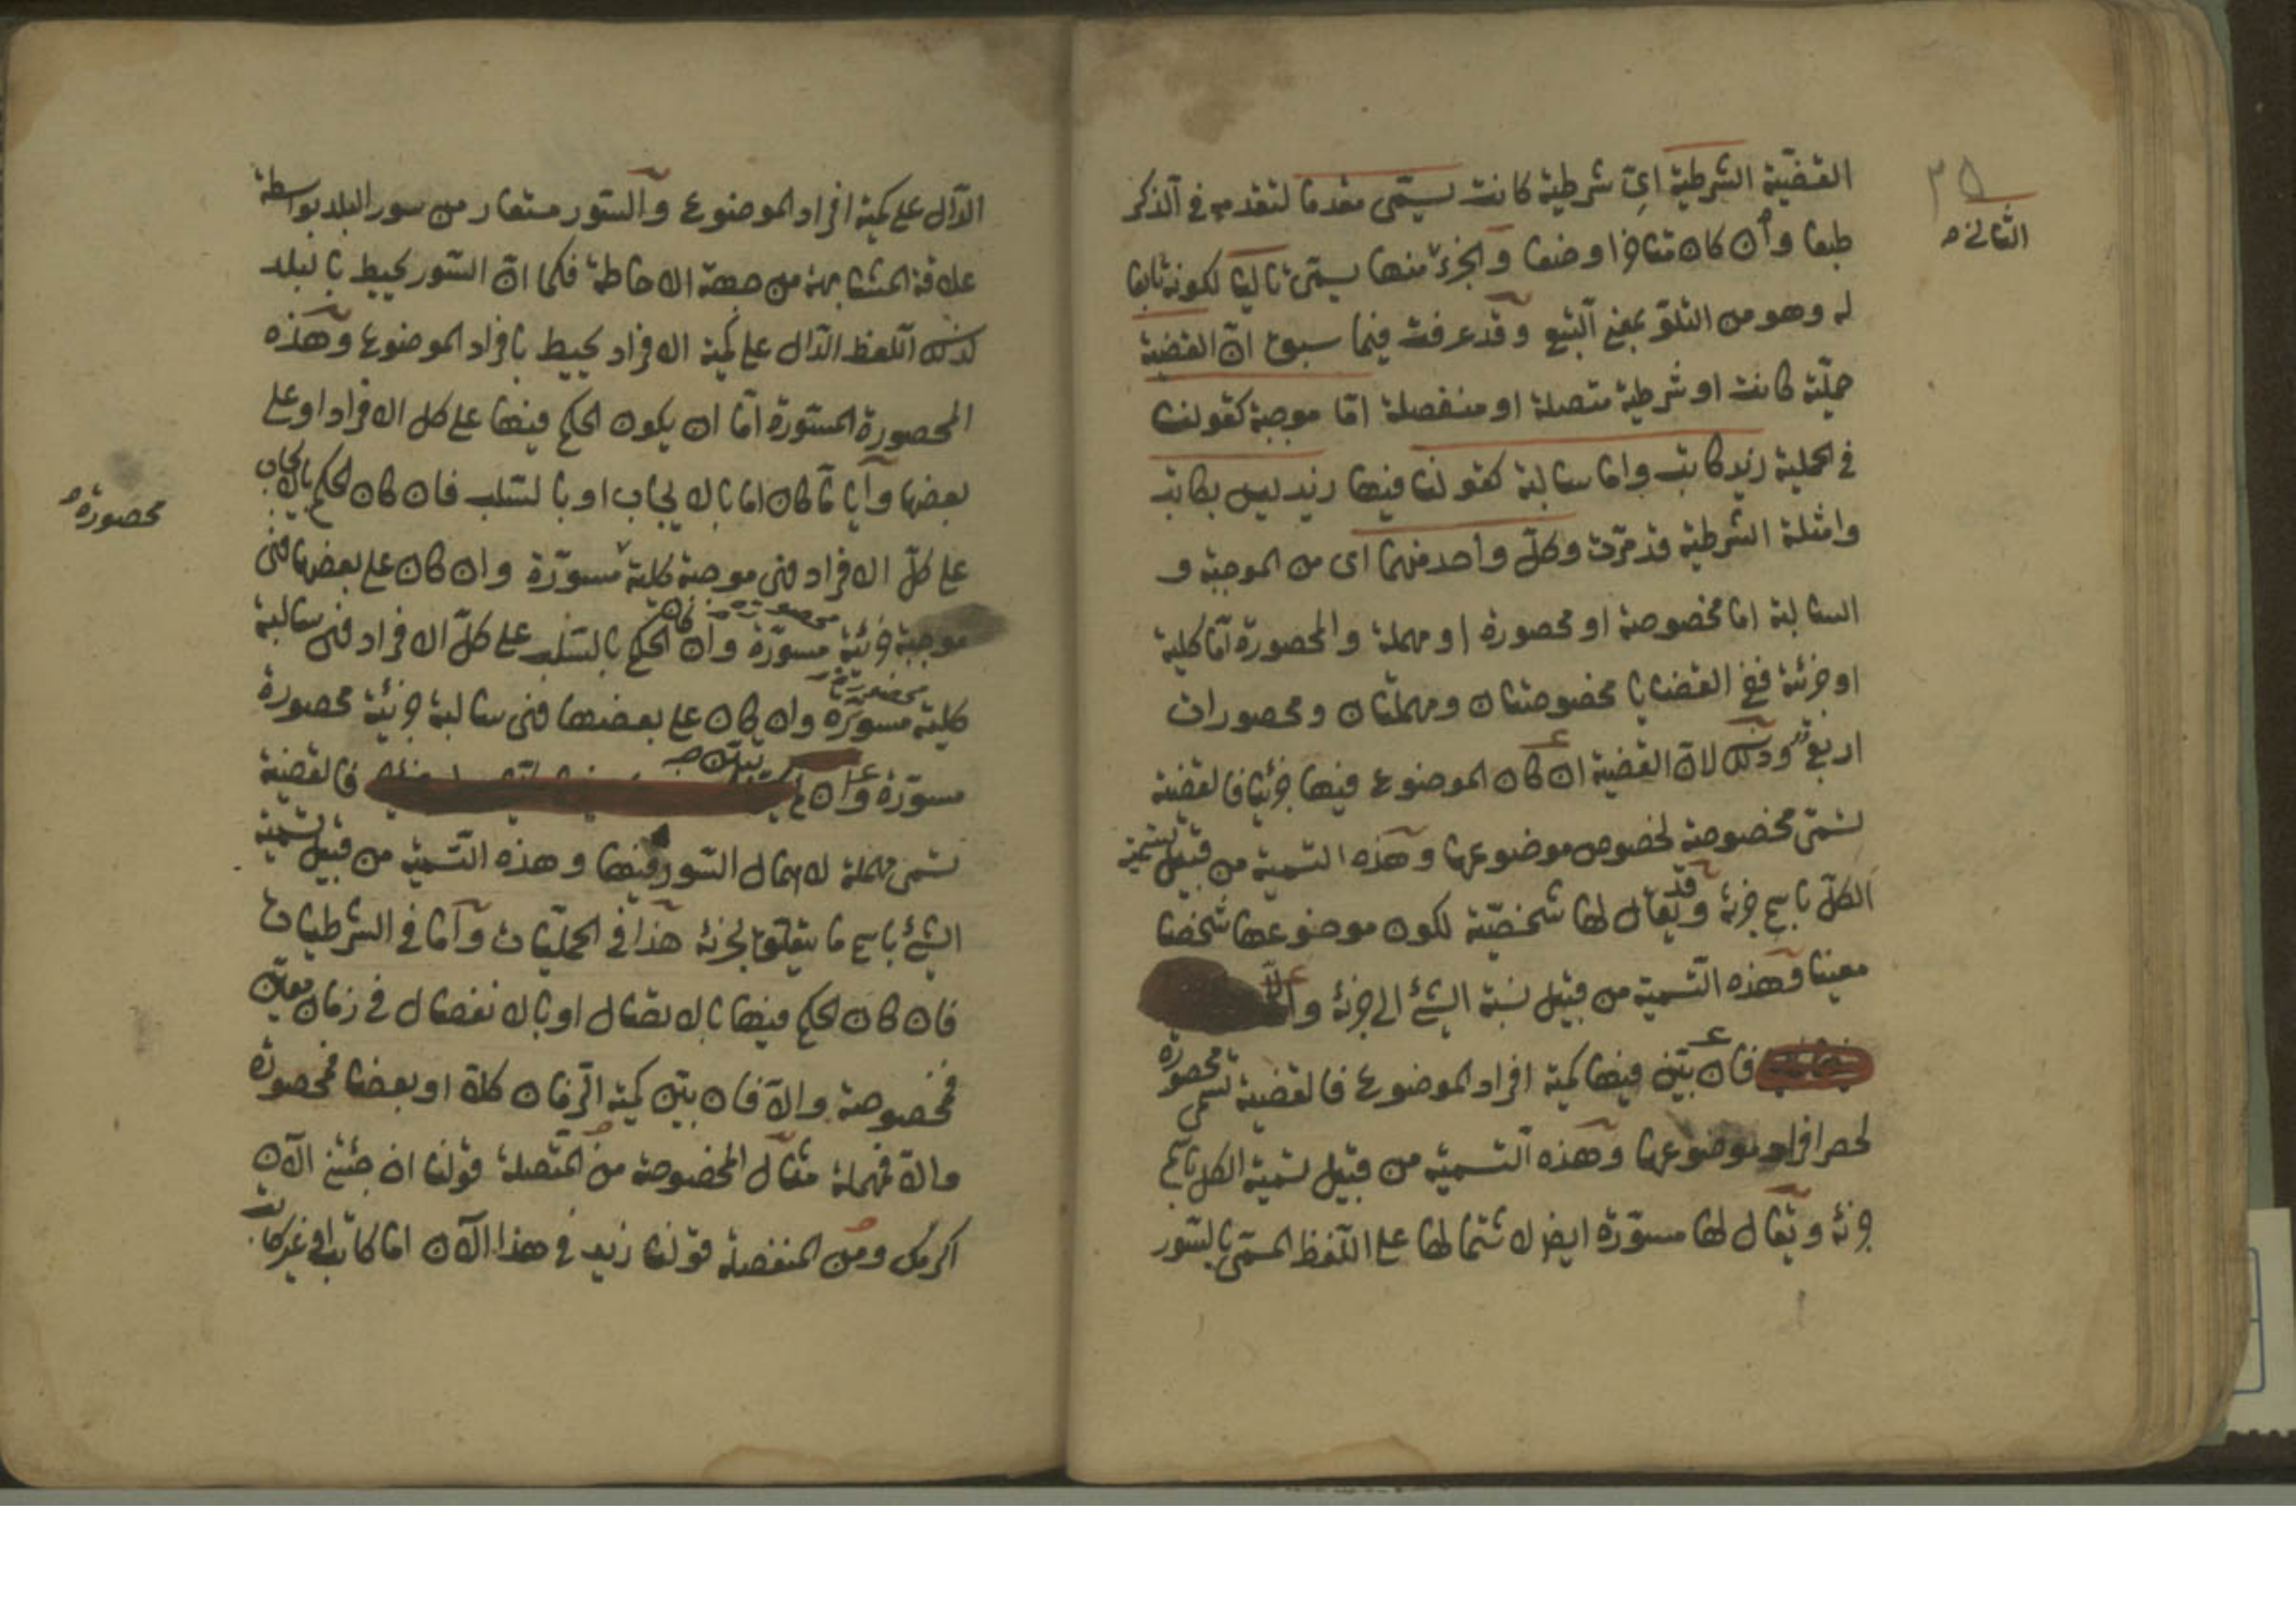 ٣٥
الثاني صح
القضيّة الشرطية ايّ شرطية كانت يسمّى مقدما لتقدمه في الذكر
طبعا وان كان متاخرا وضعا والجزء منها يسمّى تاليا لكونه تابعا
له وهو من التلوّ بمعنى التبع وقد عرفت فيما سبق انّ القضية
حمليّة كانت او شرطية متصلة او منفصلة امّا موجبة كقولنا
في الحملية زيد كاتب واما سالبة كقولنا فيها زيد ليس بكاتب
وامثلة الشرطية قد مرّت وكلّ واحد منهما اى من الموجبة و
السالبة اما مخصوصة او محصورة او مهملة والمحصورة امّا كلية
او جزئية ففي القضايا مخصوصتان ومهملتان ومحصورات
اربع وذلك لانّ القضية ان كان الموضوع فيها جزئيا فالقضية
تسمّى مخصوصة لخصوص موضوعها وهذه التسمية من قبيل تسمية
الكلّ باسم جزئه وقد يقال لها شخصيّة لكون موضوعها شخصا
معينا وهذه التسمية من قبيل نسبة الشئ الى جزئه والّا
فان بيّن فيها كمية افراد الموضوع فالقضية تسمى محصورة
لحصر افراد موضوعها وهذه التسمية من قبيل تسمية الكل باسم
جزئه ويقال لها مسوّرة ايضا لاشتمالها على اللفظ المسمّى بالسّور
الدّال على كمية افراد الموضوع والسّور مستعار من سور البلد بواسطة
علاقة المشابهة من جهة الاحاطة فكما انّ السّور يحيط بالبلد
كذلك اللفظ الدّال على كمية الافراد يحيط بافراد الموضوع وهذه
المحصورة المسوّرة امّا ان يكون الحكم فيها على كل الافراد او على
بعضها وايا ما كان اما بالايجاب او بالسّلب فان كان الحكم بالايجاب
محصورة صح
على كلّ الافراد فهى موجبة كلية مسوّرة وان كان على بعضها فهى
موجبة جزئية محصورة مسوّرة وان كان الحكم بالسّلب على كلّ الافراد فهى سالبة
كلية محصورة مسوّرة وان كان على بعضها فهى سالبة جزئية محصورة
مسوّرة وان لم يبيّن فالقضية
تسمى مهملة لاهمال السّور فيها وهذه التّسمية من قبيل تسمية
الشئ باسم ما يتعلق بجزئه هذا في الحمليّات وامّا في الشرطيات
فان كان الحكم فيها بالاتصال او بالانفصال في زمان معيّن
فمخصوصة والّا فان بيّن كمية الزّمان كلّا او بعضا فمحصورة
والّا فمهملة مثال المخصوصة من المتّصلة قولنا ان جئتني الآن
اكرمك ومن المنفصلة قولنا زيد في هذا الآن اما كاتب او غير كاتب